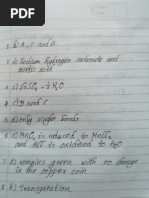 1. b) A, C and D
2. b) Sodium hydrogen carbonate and
acetic acid
3. c) CaSO₄ · ½ H₂O
4. c) B and C
5. a) only single bonds
6. c) MnO₂ is reduced to MnCl₂
and HCl is oxidized to H₂O
7. d) remains green with no change
in the copper coin
8. b) Transpiration